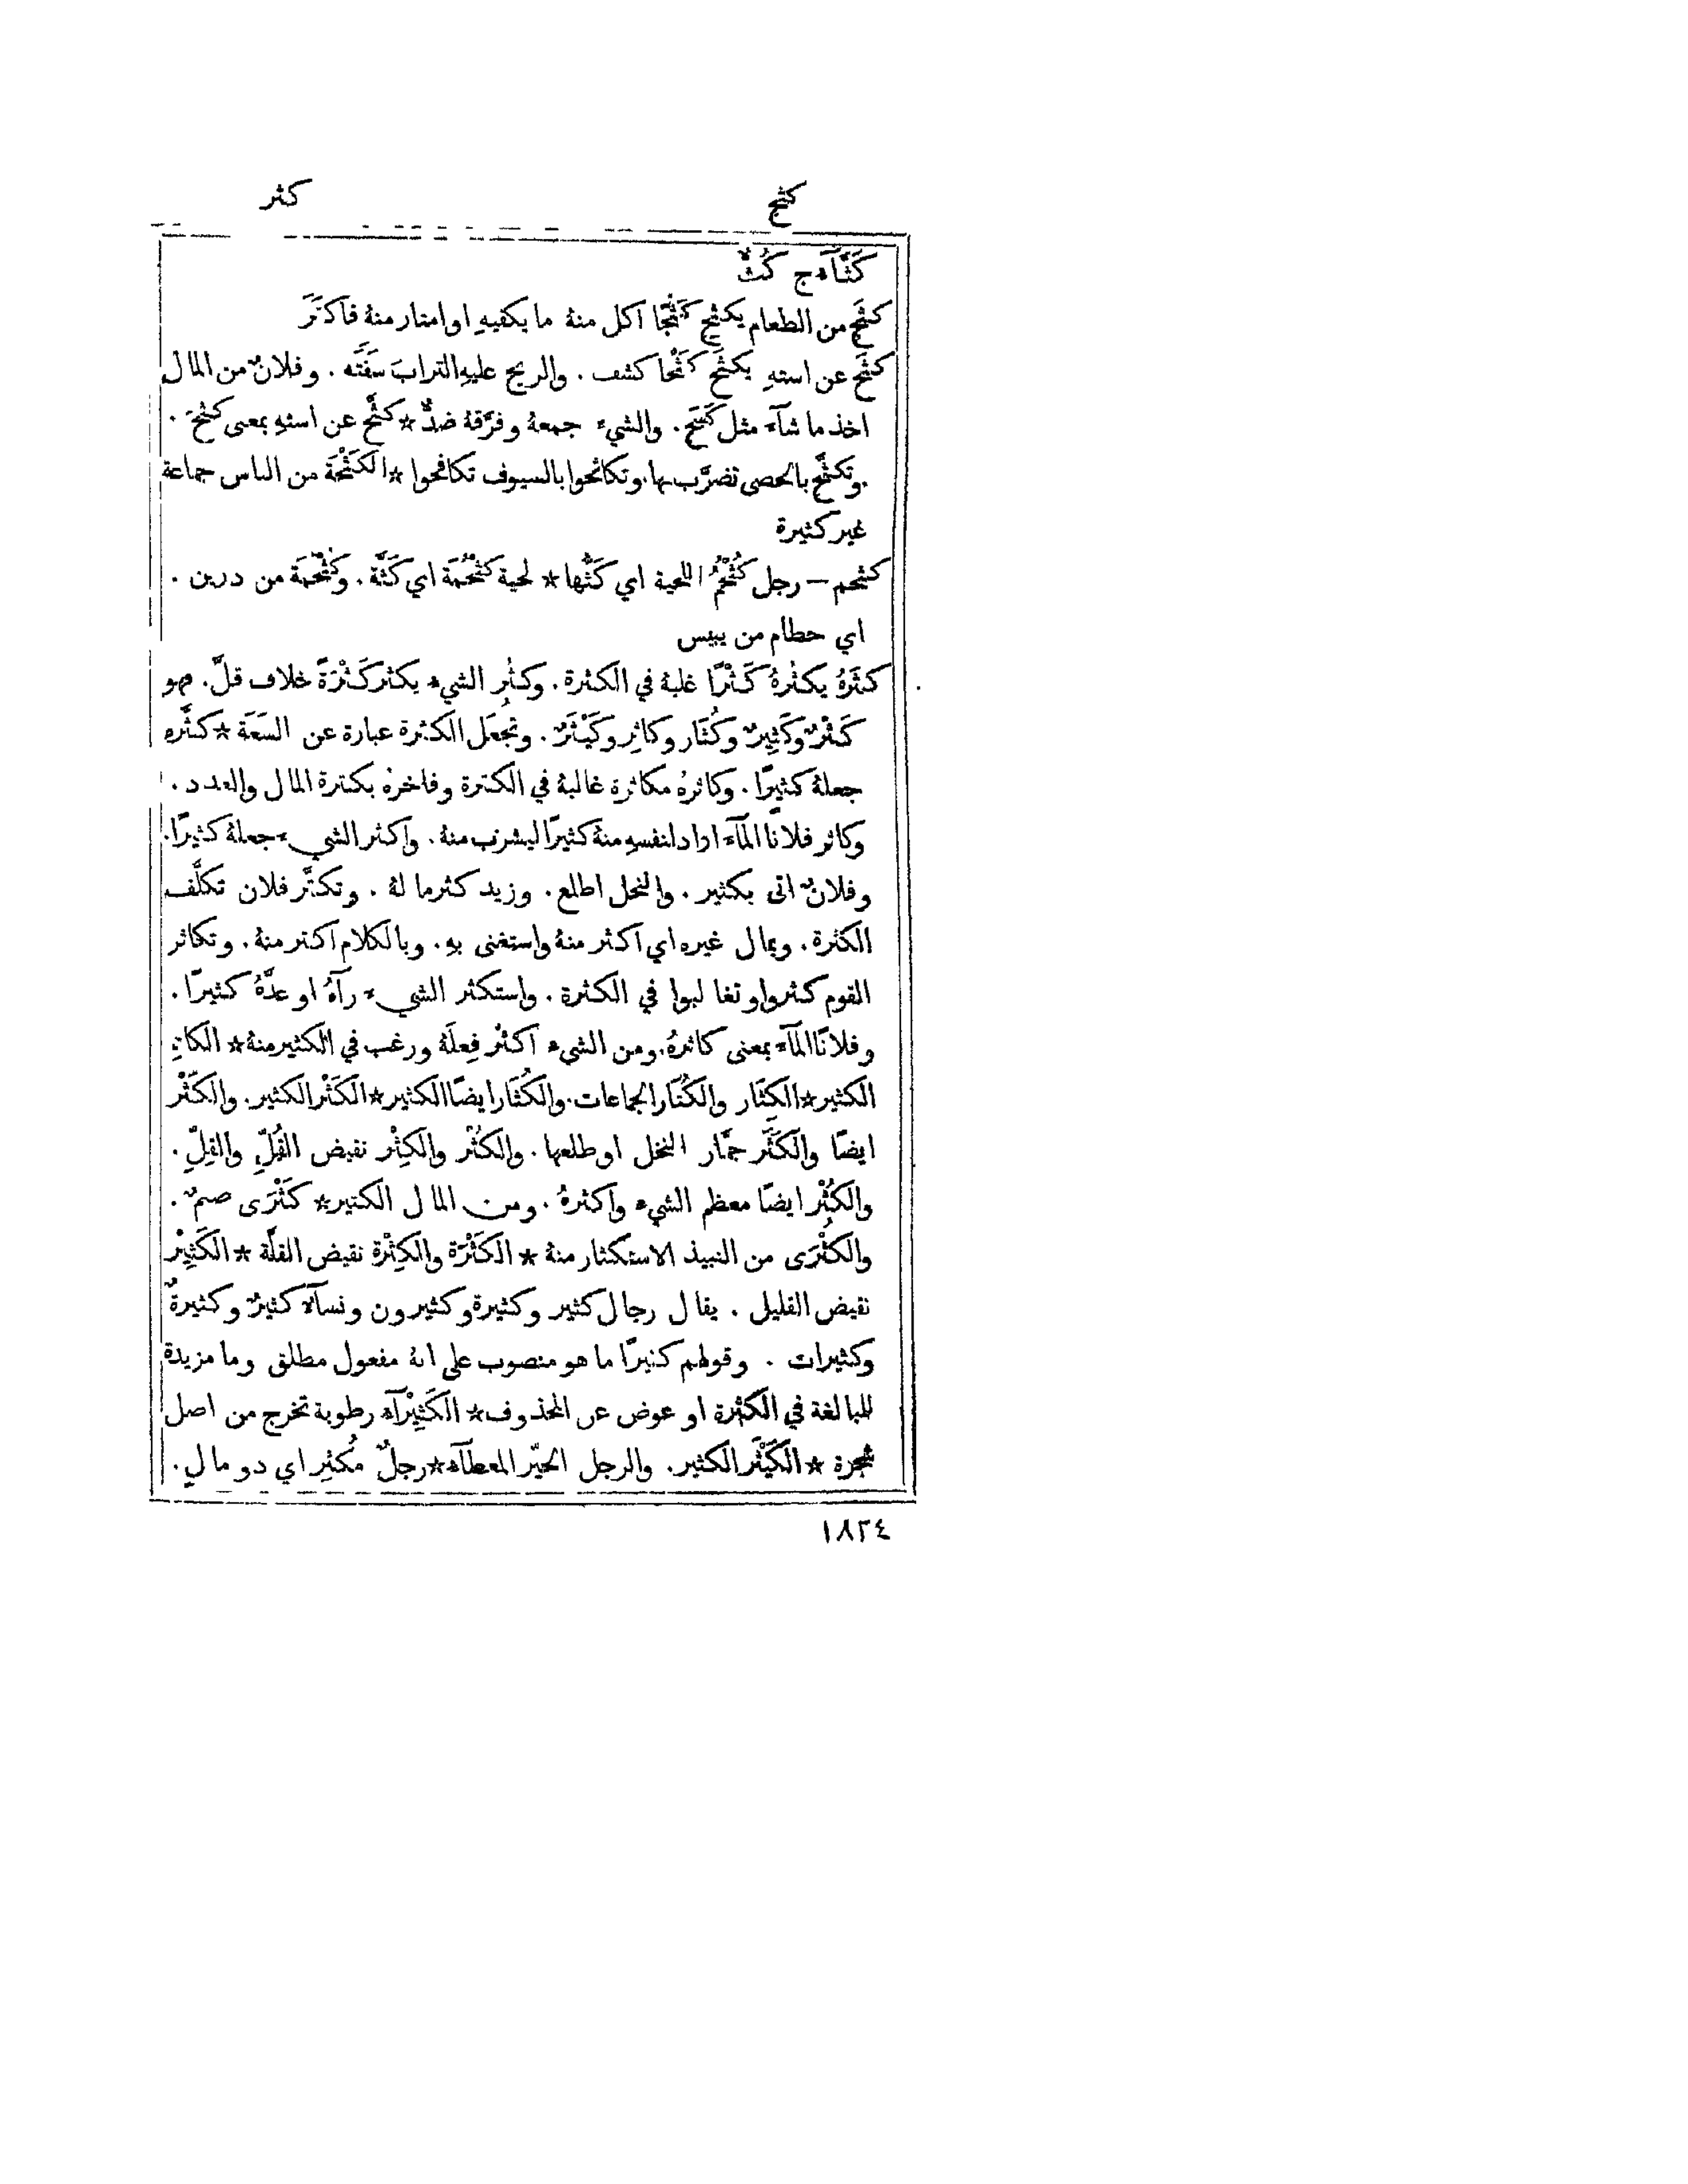 كثج كثر
كَثَّآءج كُثٌّ
كثَج من الطعام يكثِج كَثْجًا اكل منهُ ما يكفيهِ او امتار منهُ فاكثَرَ
كثَح عن استهِ يكثَح كَثْحًا كشف . والريح عليهِ الترابَ سَفَتَه . وفلانٌ من المال
اخذ ما شآء مثل كَتَح . والشيء جمعهُ وفرَّقهُ ضدٌّ * كثَّح عن استهِ بمعنى كثَحَ .
وتكثَّح بالحصى تضرَّب بها . وتكاثحوا بالسيوف تكافحوا * الكَثْحَة من الناس جماعة
غير كثيرة
كثحم — رجل كُثْحُمُ اللحية اي كَثُّها * لحية كَثْحَمَة اي كَثَّة . وكُثْحُمَة من درين .
اي حطام من يبيس
كثَرَهُ يكثُرهُ كَثْرًا غلبهُ في الكثرة . وكثُر الشيء يكثر كَثْرَةً خلاف قلَّ . فهو
كَثْرٌ وكَثِيرٌ وكُثَار وكاثِر وكَيْثَرٌ . وتُجعَل الكثرة عبارة عن السَعَة * كثَّره
جعلهُ كثيرًا . وكاثرهُ مكاثرة غالبهُ في الكثرة وفاخرهُ بكثرة المال والعدد .
وكاثر فلانًا المآء اراد لنفسهِ منهُ كثيرًا ليشرب منهُ . واكثر الشيء جعلهُ كثيرًا .
وفلانٌ اتى بكثير . والنخل اطلع . وزيد كثر ما لهُ . وتكثَّر فلان تكلَّف
الكثرة . وبمال غيره اي اكثر منهُ واستغنى بهِ . وبالكلام اكثر منهُ . وتكاثر
القوم كثروا وتغالبوا في الكثرة . واستكثر الشيء رآهُ او عدَّهُ كثيرًا .
وفلانًا المآء بمعنى كاثرهُ . ومن الشيء اكثَرُ فِعلَهُ ورغب في الكثير منهُ * الكاثِر
الكثير * الكِثَار والكُثَار الجماعات . والكُثَار ايضًا الكثير * الكَثْر الكثير . والكَثْر
ايضًا والكَثَر جمَّار النخل او طلعها . والكُثْر والكِثْر نقيض القُلّ والقِلّ .
والكُثْر ايضًا معظم الشيء واكثرهُ . ومن المال الكثير * كَثْرَى صنمٌ .
والكُثْرَى من النبيذ الاستكثار منهُ * الكَثْرَة والكِثْرة نقيض القلَّة * الكَثِيْر
نقيض القليل . يقال رجال كثير وكثيرة وكثيرون ونسآء كثيرٌ وكثيرةٌ
وكثيرات . وقولهم كثيرًا ما هو منصوب على انهُ مفعول مطلق وما مزيدة
للمبالغة في الكثرة او عوض عن المحذوف * الكَثِيْرآء رطوبة تخرج من اصل
شجرة * الكَيْثَر الكثير . والرجل الخيّر المعطآء * رجلٌ مُكثِر اي ذو مالٍ .
١٨٢٤